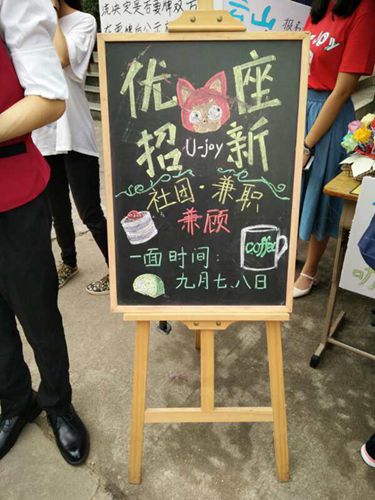 优座
U-joy
招新
社团·兼职
兼顾
coffee
一面时间:
九月七、八日